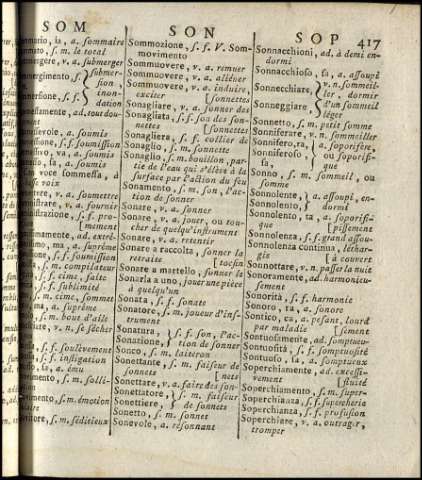 SOM
SON
SOP
417
sommaire
s. m. le total
v. a. submerger
submersion, inondation
ad. tout dou-
a. soumis
s. f. soumission
a. soumis
a. soumis
voce sommessa, à
voix
v. a. soumettre
v. a. fournir
s. f. pro-
[mement
ad. extrê-
a. suprême
s. f. soumission
s. m. compilateur
s. f. cime, faîte
s. f. sublimité
s. m. cime, sommet
a. suprême
s. m. bout d'aile
v. n. se sécher
s. f. soulèvement
s. f. instigation
a. ému
s. m. solli-
s. m. émotion
s. m. séditieux
Sommozione, s. f. V. Som-
movimento
Sommuovere, v. a. remuer
Sommuovere, v. a. aliéner
Sommuovere, v. a. induire,
exciter [sonnettes
Sonagliare, v. a. sonner des
Sonagliata, s. f. son des son-
nettes [sonnettes
Sonagliera, s. f. collier de
Sonaglio, s. m. sonnette
Sonaglio, s. m. bouillon, par-
tie de l'eau qui s'élève à la
surface par l'action du feu
Sonamento, s. m. son, l'ac-
tion de sonner
Sonare, v. a. sonner
Sonare, v. a. jouer, ou tou-
cher de quelqu'instrument
Sonare, v. a. retentir
Sonare a raccolta, sonner la
retraite [tocsin
Sonare a martello, sonner le
Sonarla a uno, jouer une pièce
à quelqu'un
Sonata, s. f. sonate
Sonatore, s. m. joueur d'ins-
trument
Sonatura, s. f. son, l'ac-
Sonazione, tion de sonner
Sonco, s. m. laiteron
Sonettante, s. m. faiseur de
sonnets [nets
Sonettare, v. a. faire des son-
Sonettatore, s. m. faiseur
Sonettiere, de sonnets
Sonetto, s. m. sonnet
Sonevole, a. résonnant
Sonnacchioni, ad. à demi en-
dormi
Sonnacchioso, sa, a. assoupi
Sonnecchiare, v. n. sommeil-
ler, dormir
Sonneggiare, d'un sommeil
léger
Sonnetto, s. m. petit somme
Sonniferare, v. n. sommeiller
Sonnifero, ra, a. soporifère,
Sonniferoso, ou soporifi-
sa, que
Sonno, s. m. sommeil, ou
somme
Sonnolente, a. assoupi, en-
Sonnolento, dormi
Sonnolento, ta, a. soporifi-
que [pissement
Sonnolenza, s. f. grand assou-
Sonnolenza continua, léthar-
gie [à couvert
Sonnottare, v. n. passer la nuit
Sonoramente, ad. harmonieu-
sement
Sonorità, s. f. harmonie
Sonoro, ra, a. sonore
Sontico, ca, a. pesant, lourd
par maladie [sement
Sontuosamente, ad. somptueu-
Sontuosità, s. f. somptuosité
Sontuoso, sa, a. somptueux
Soperchiamente, ad. excessi-
vement [fluité
Soperchiamento, s. m. super-
Soperchianza, s. f. supercherie
Soperchianza, s. f. profusion
Soperchiare, v. a. outrager,
tromper